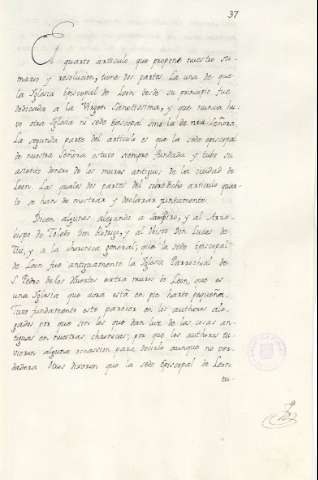 37
El quarto articulo que propone nuestro su-
mario y resolucion, tiene dos partes. La una de que
la Iglesia Episcopal de Leon desde su principio fue
dedicada a la Virgen Sanctissima, y que nunca hu-
vo otra Iglesia ni sede Episcopal sino la de nra Señora.
La segunda parte del articulo es que la sede episcopal
de nuestra Señora estuvo siempre fundada y tubo su
assiento dentro de los muros antiguos de la ciudad de
Leon. Las quales dos partes del sobredicho articulo quar-
to se han de mostrar y declarar juntamente.
Dicen algunos alegando a Sampiro, y al Arzo-
bispo de Toledo Don Rodrigo, y al Obispo Don Lucas de
Tuy, y a la choronica general, que la sede Episcopal
de Leon fue antiguamente la Iglesia Parrochial de
S. Pedro de los Huertos extra muros de Leon, que es
una Iglesia que aora está en pie harto pequeña.
tuvo fundamento este parecer en los authores ale-
gados por que son los que dan luz de las cosas an-
tiguas en nuestras chronicas, por que los authores tu-
vieron alguna ocassion para decirlo aunque no ver-
dadera. Unos dixeron que la sede Episcopal de Leon